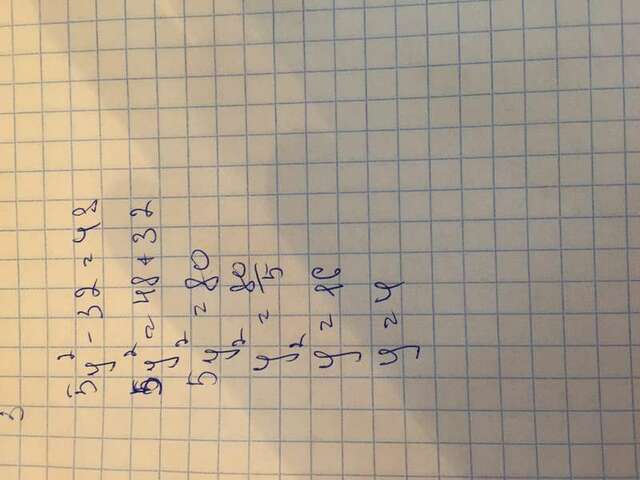 5y² - 32 = 48
5y² = 48 + 32
5y² = 80
y² = 80/5
y² = 16
y = 4